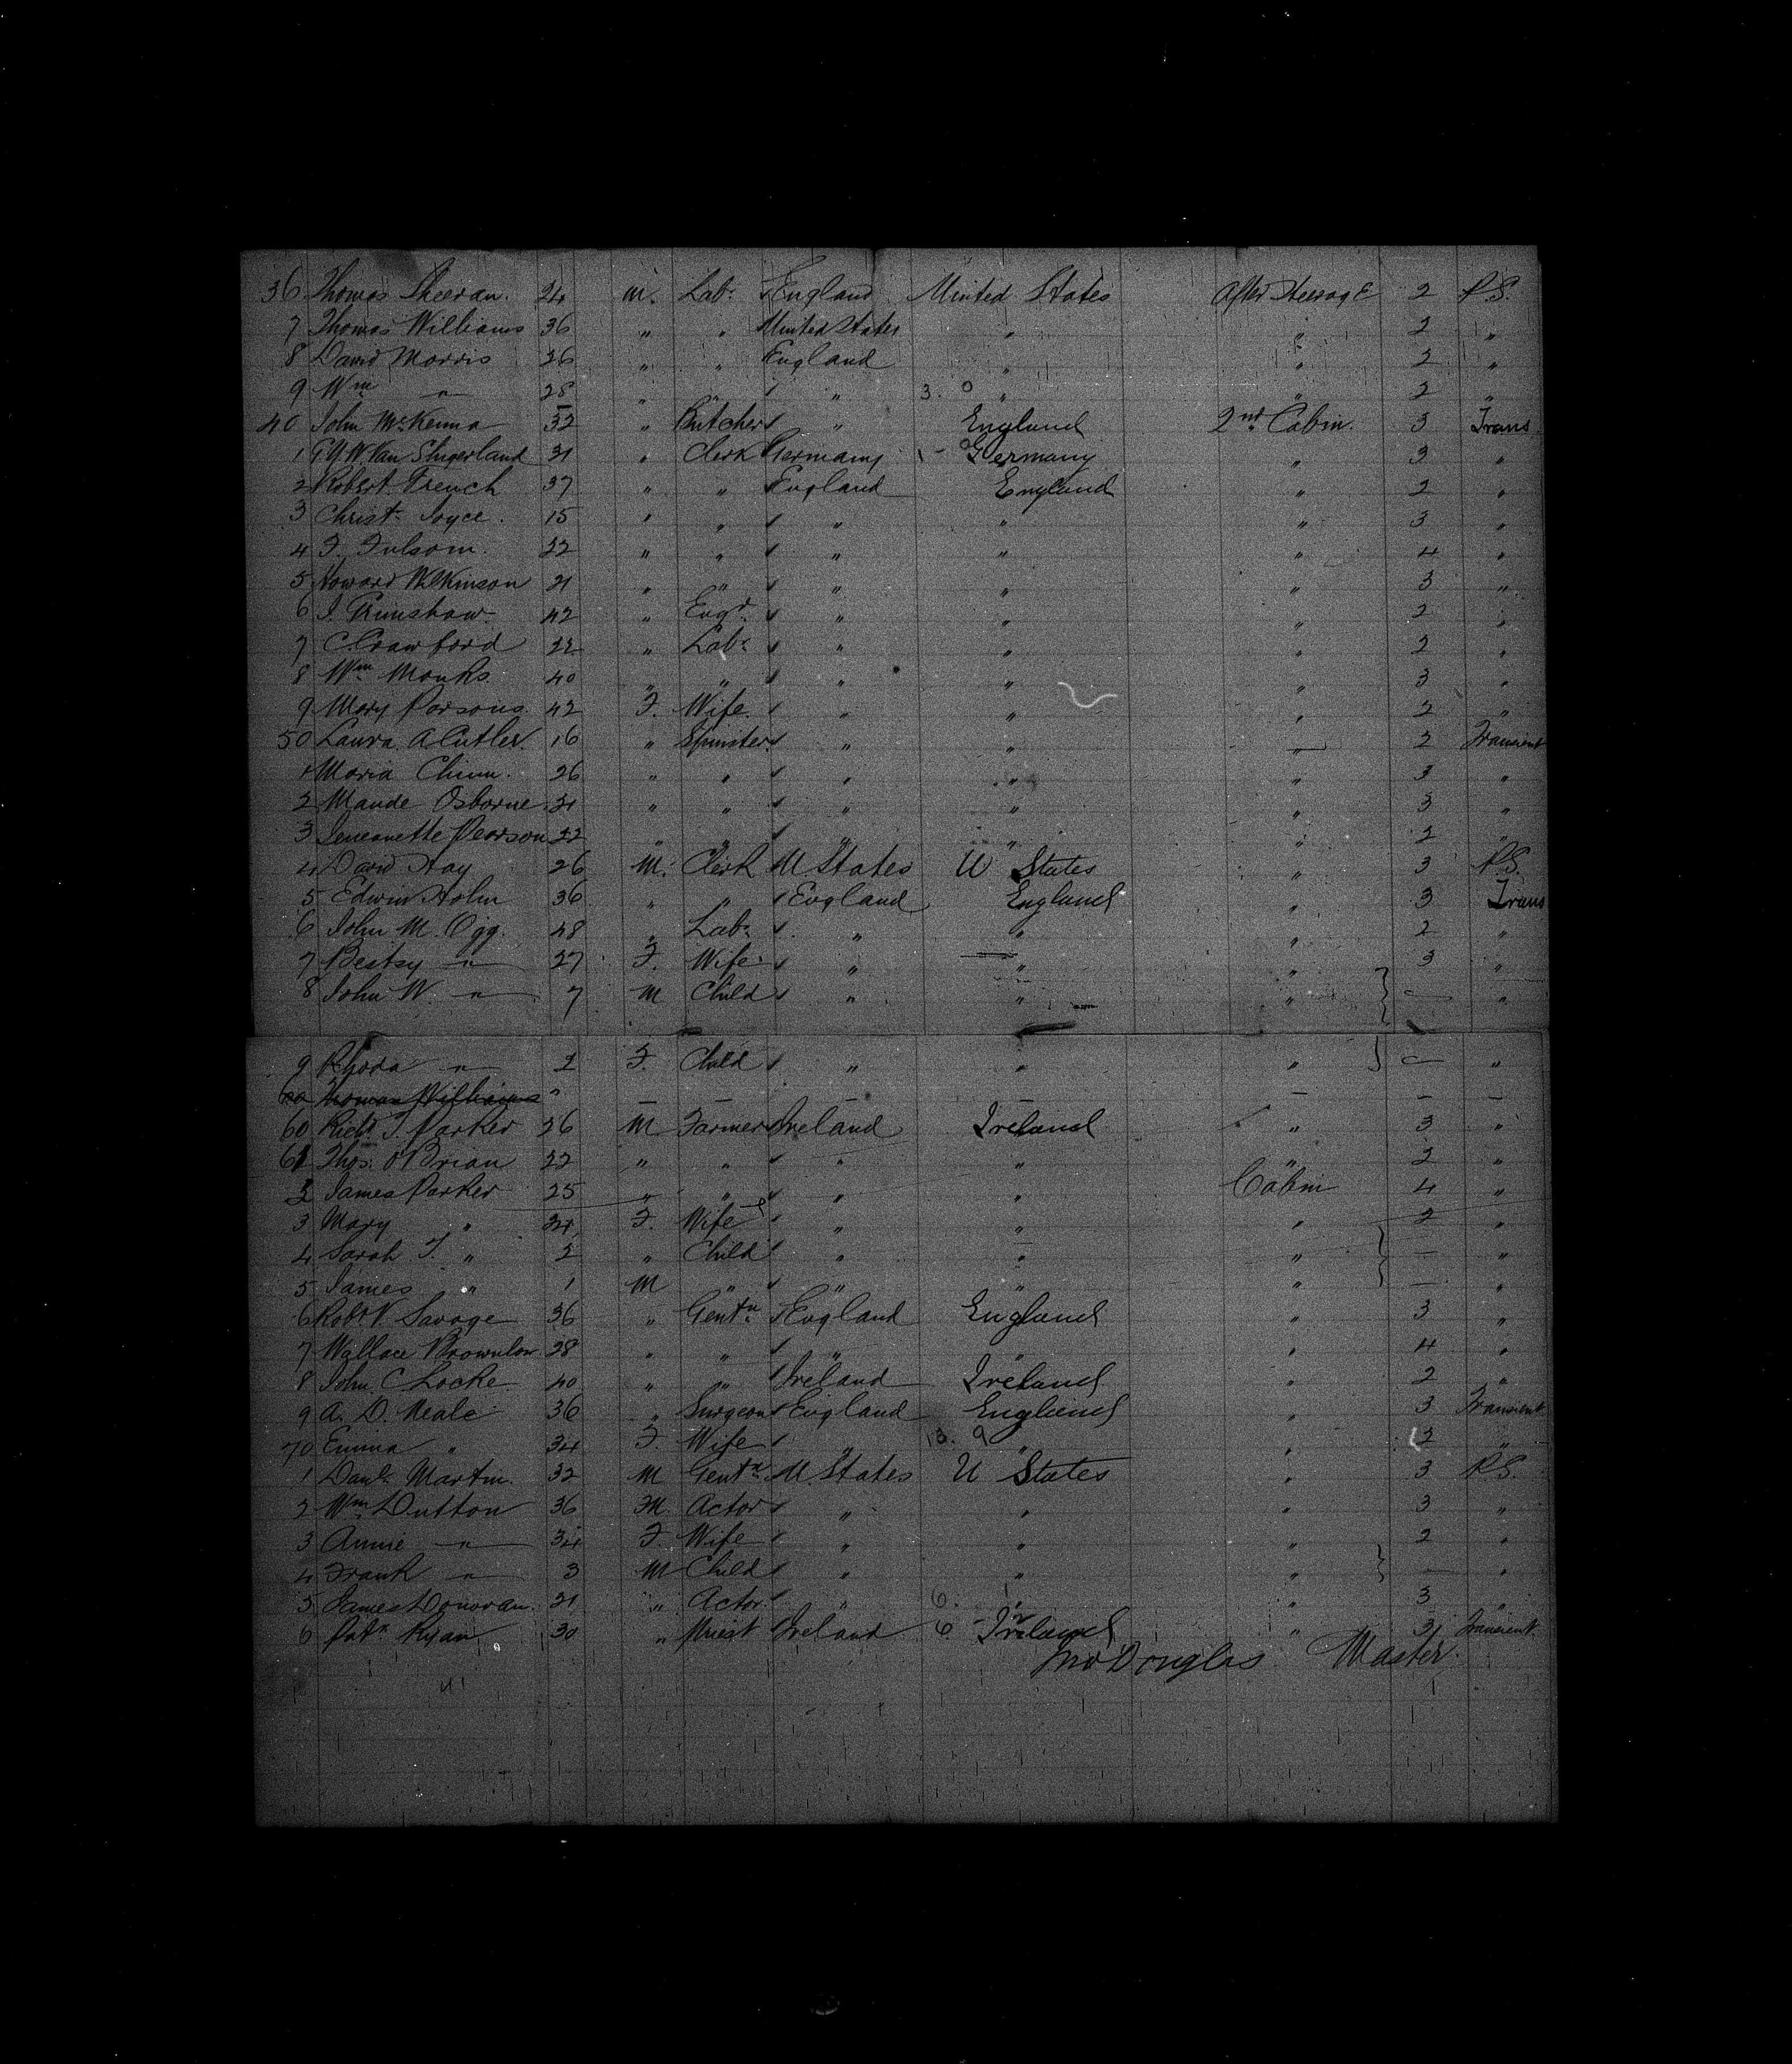 36 Thomas Sheeran. 24 M. Labr England United States After Steerage 2 P.S.
7 Thomas Williams 36 " " United States " " 2 "
8 David Morris 26 " " England " " 2 "
9 Wm " 28 " " " 3. 0 " " 2 "
40 John McKenna 32 " Butcher " England 2nd Cabin. 3 Trans
1 Van Slugerland 31 " Clerk Germany Germany " 3 "
2 Robert French 37 " " England England " 2 "
3 Christr Joyce. 15 " " " " " 3 "
4 F. Fulsom. 22 " " " " " 4 "
5 Howard Wilkinson 21 " " " " " 3 "
6 J. Grimshaw 42 " Engr " " " 2 "
7 C. Crawford 22 " Labr " " " 2 "
8 Wm Monks. 40 " " " " " 3 "
9 Mary Parsons. 42 F. Wife. " " " 2 "
50 Laura A Cutler. 16 " Spinster " " " 2 Transient
1 Maria Chinn. 26 " " " " " 3 "
2 Maude Osborne 21 " " " " " 3 "
3 Jeneanette Pearson 22 " " " " " 2 "
4 David Hay 26 M. Clerk U States U States " 3 P.S.
5 Edwin Holm 36 " " England England " 3 Trans
6 John M. Ogg. 48 " Labr " " " 2 "
7 Bestsy " 27 F. Wife " " " 3 "
8 John W. " 7 M Child " " " — "
9 Rhoda " 2 F. Child " " " — "
60 Thomas Williams " — — — — —
60 Richd J. Parker 26 M Farmer Ireland Ireland " 3 "
61 Thos. O'Brian 22 " " " " " 2 "
2 James Parker 25 " " " " Cabin 4 "
3 Mary " 24 F. Wife " " " 2 "
4 Sarah J. " 2 " Child " " " — "
5 James " 1 M " " " " — "
6 Robt V. Savage 36 " Gentn England England " 3 "
7 Wallace Brownlow 28 " " " " " 4 "
8 John C Locke 40 " " Ireland Ireland " 2 "
9 A. D. Neale 36 " Surgeon England England " 3 Transient
70 Emma " 34 F. Wife " 13. 9 " " 2 "
1 Danl. Martin. 32 M Gentn U. States U States " 3 P.S.
2 Wm Dutton 36 M. Actor " " " 3 "
3 Annie " 34 F. Wife " " " 2 "
4 Frank " 3 M Child " " " — "
5 James Donovan. 21 " Actor " 6. 1 " " 3 "
6 Patk Ryan 30 " Priest Ireland 6. Ireland " 3 Transient.
Jno Douglas Master.